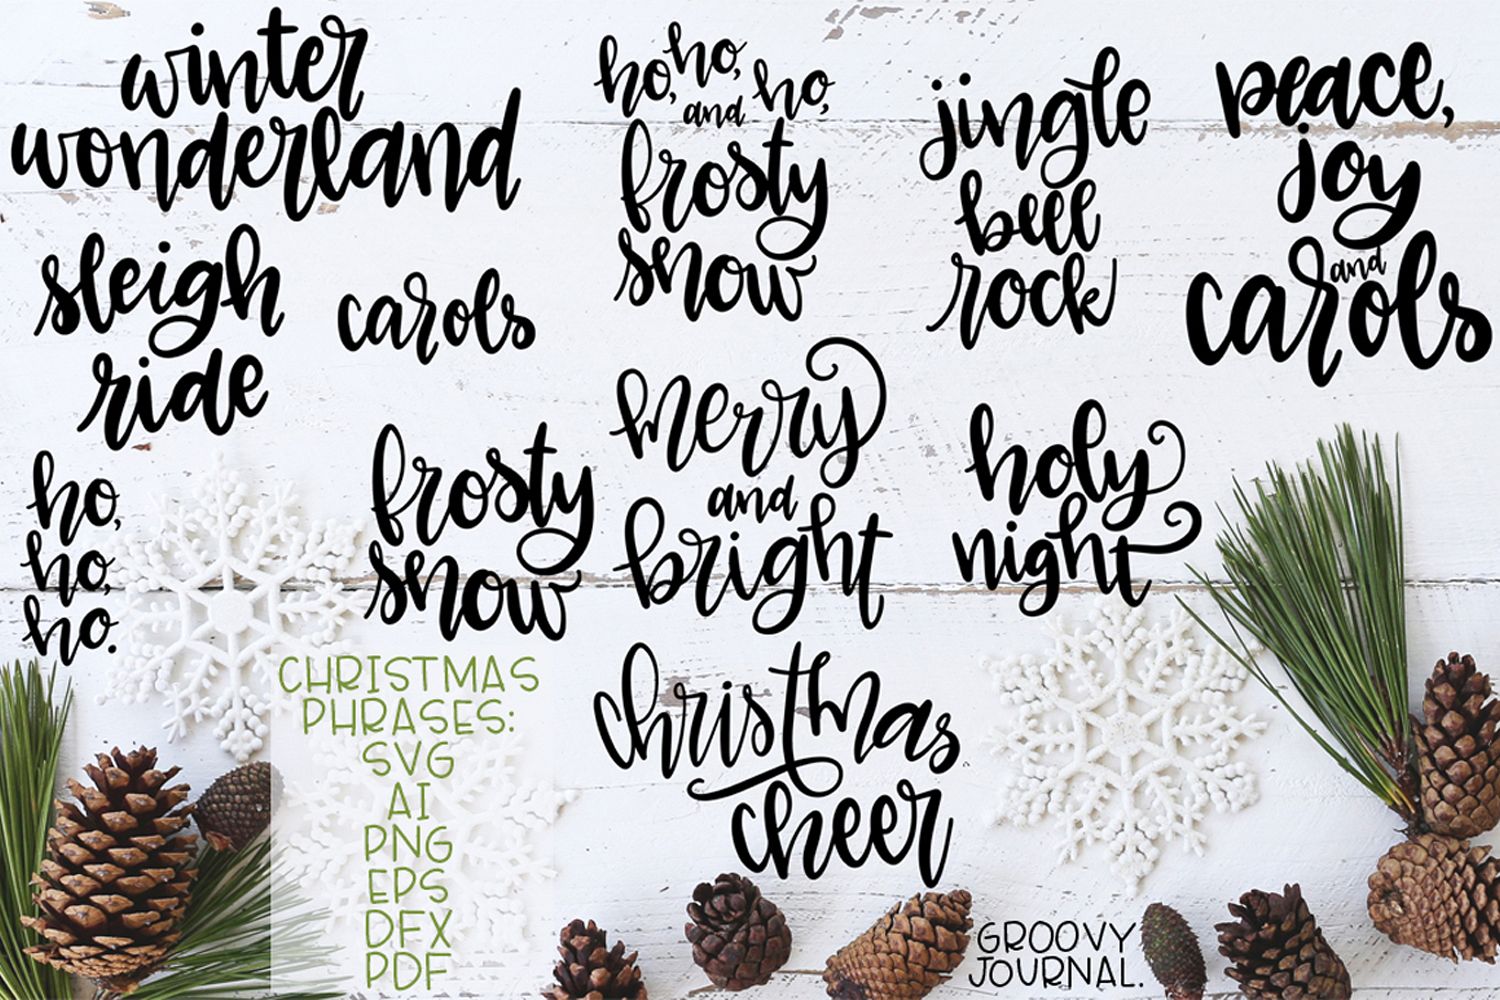 winter
wonderland
ho, ho,
and ho,
frosty
snow
jingle
bell
rock
peace,
joy
and
carols
sleigh
ride
carols
ho,
ho,
ho.
frosty
snow
merry
and
bright
holy
night
CHRISTMAS
PHRASES:
SVG
AI
PNG
EPS
DFX
PDF
christmas
cheer
GROOVY
JOURNAL.